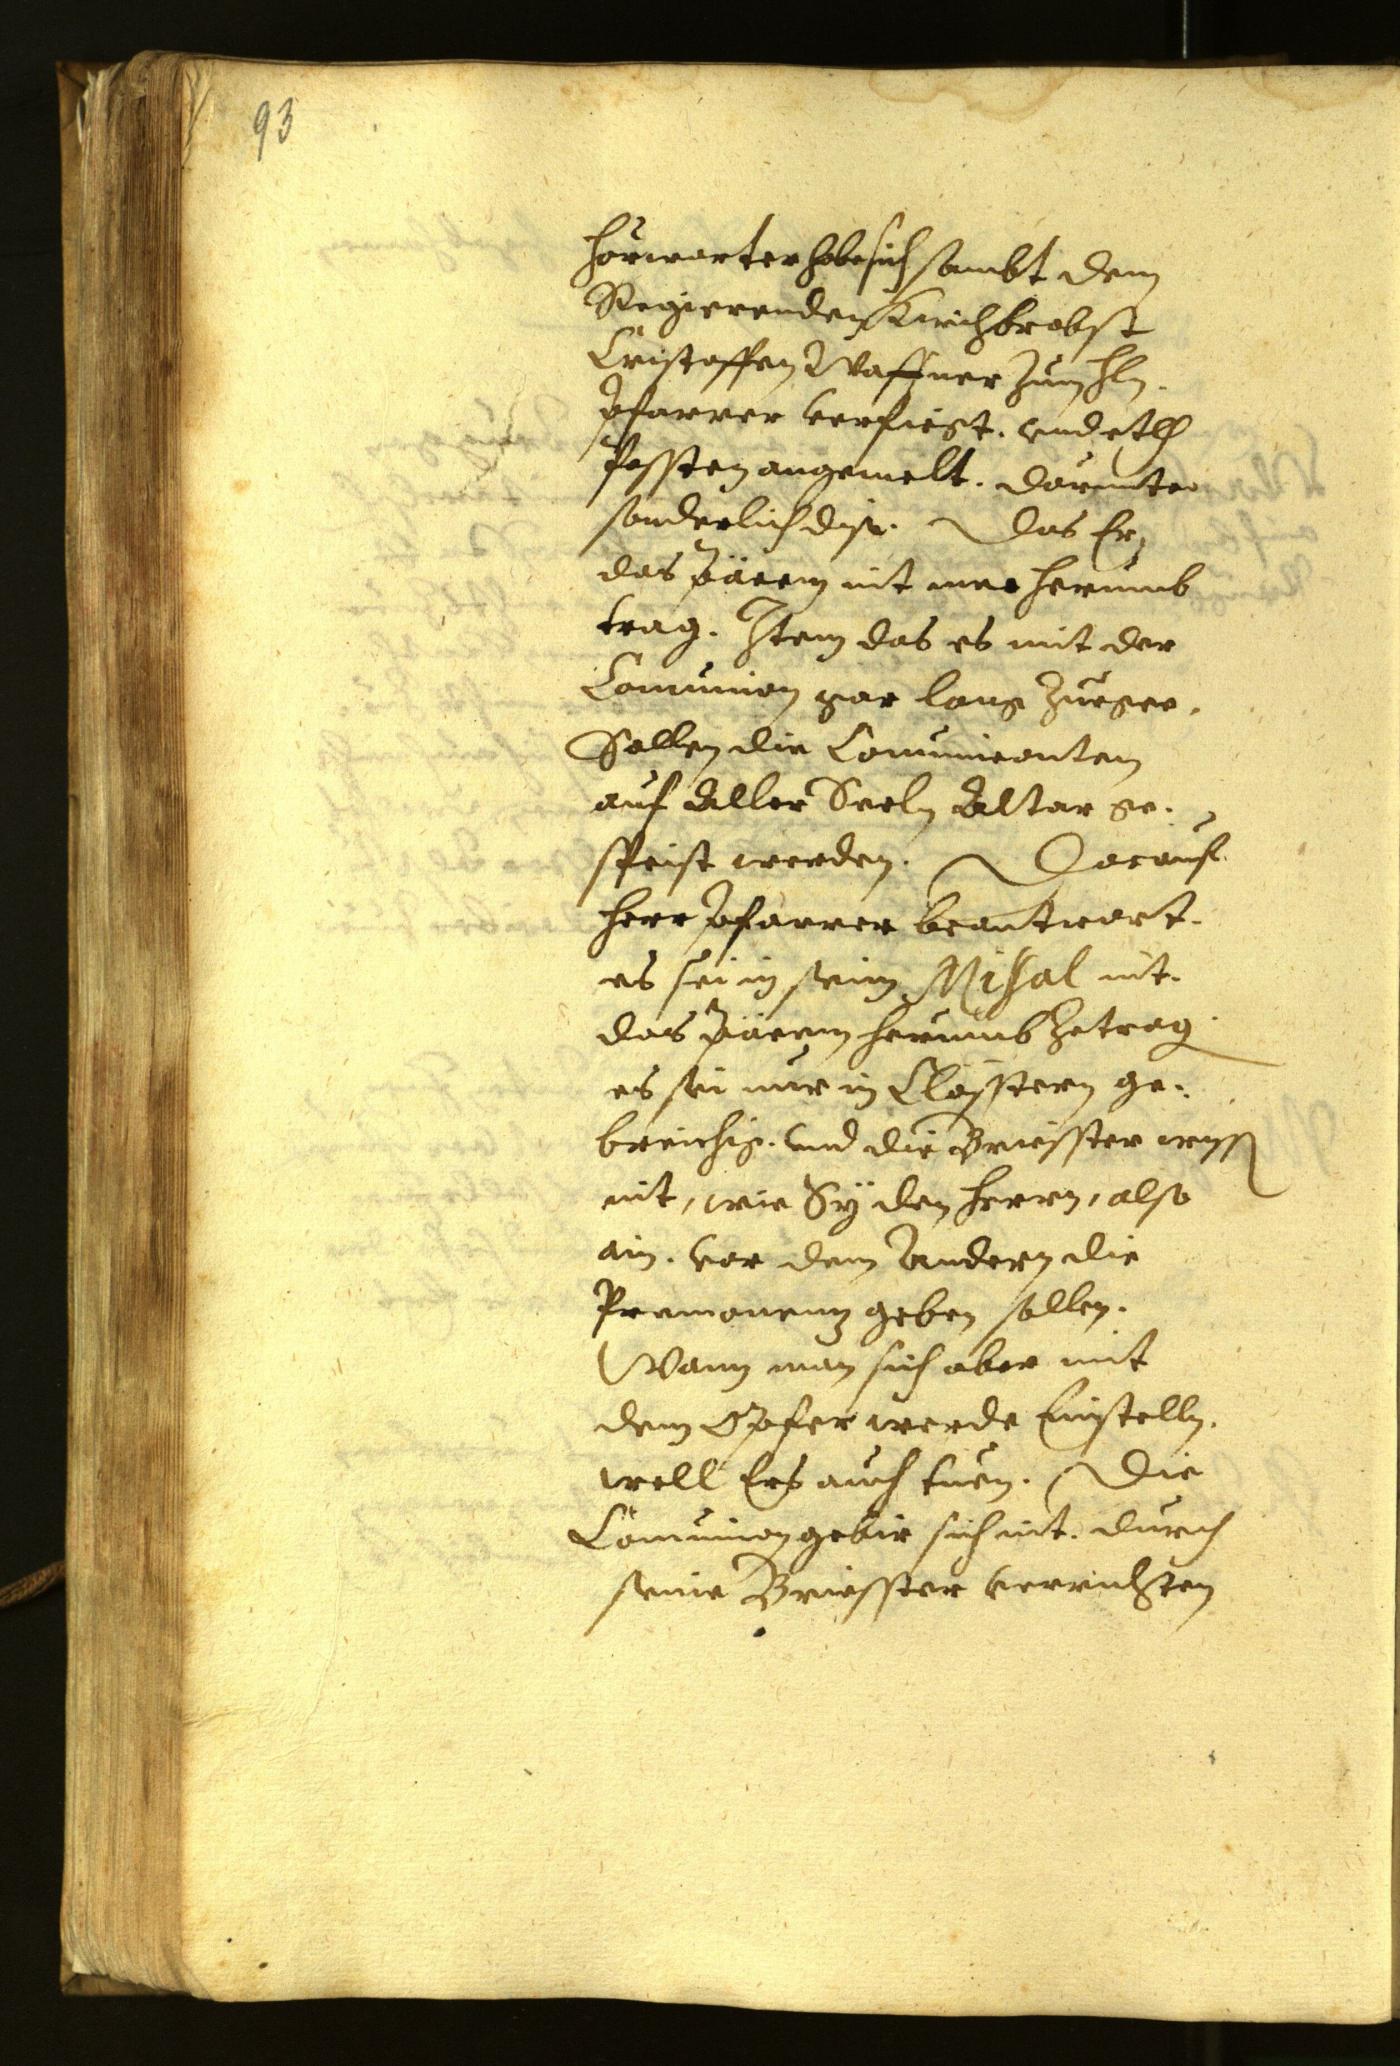 93
Hörwarter hab sich sambt dem
Regierenden Kirchbrobst
Cristoffen Waffner zum Hln.
Pfarrer verfiegt. und etlh
Possten angemelt. darunter
sonderlich dise. Das Er,
das päcem nit mer herumb
trag. Item das es mit der
Comunion gar lang zuegee.
Sollen die Comunicanten
auf Aller Seeln Altar ge¬
speist werden. Darauf
herr Pfarrer beantwort.
es sei in seim Missal nit.
das päcem herumb zetrag
es sei nur in Clösstern ge¬
breichig. und die Briesster wissen
nit, wie Sy den herrn, also
ain. vor dem Andern die
Premonenz geben sollen.
Wann man sich aber mit
dem Opfer werde Einstelln.
well Ers auch tuen. Die
Comunion gebir sich nit. durch
seine Briesster verrichten